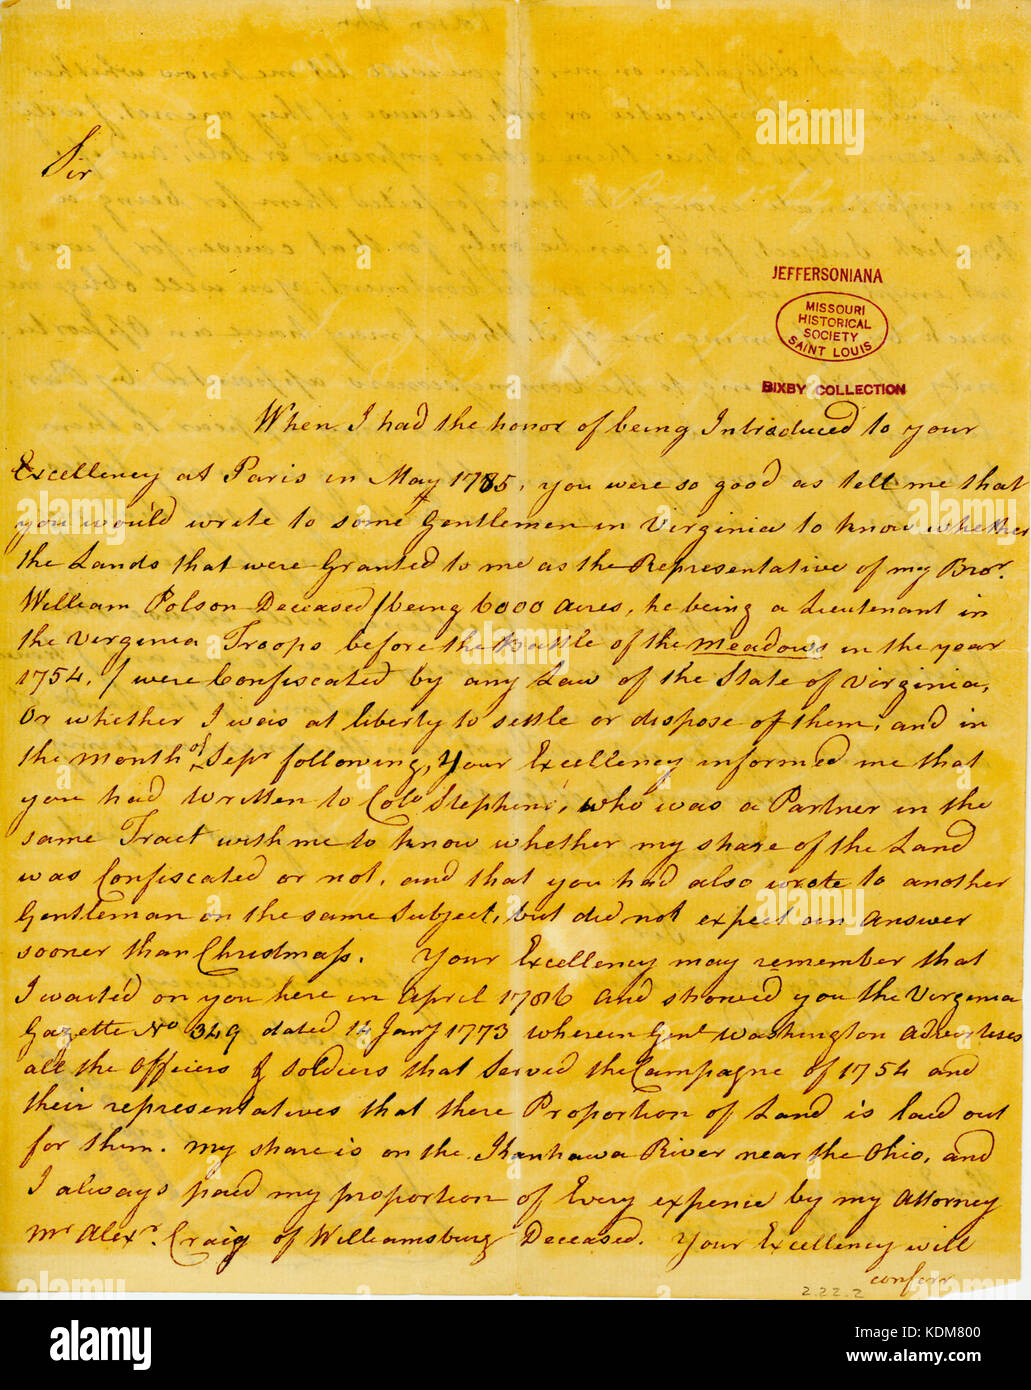 Sir
JEFFERSONIANA
MISSOURI
HISTORICAL
SOCIETY
SAINT LOUIS
BIXBY COLLECTION
When I had the honor of being Introduced to your
Excellency at Paris in May 1785, you were so good as tell me that
you would write to some Gentlemen in Virginia to know whether
the Lands that were Granted to me as the Representative of my Bror.
William Polson Deceased / being 6000 acres, he being a Lieutenant in
the Virginia Troops before the Battle of the Meadows in the year
1754. / were Confiscated by any Law of the State of Virginia,
Or whether I was at liberty to settle or dispose of them, and in
the month of Sepr following, Your Excellency informed me that
you had written to Colo Stephens, who was a Partner in the
same Tract with me to know whether my share of the Land
was Confiscated or not, and that you had also wrote to another
Gentleman on the same Subject, but did not expect an answer
sooner than Christmass. Your Excellency may remember that
I waited on you here in april 1786 and showed you the Virginia
Gazette No 349 dated 14 Jany 1773 wherein Genl Washington advertises
all the officers & soldiers that served the Campagne of 1754 and
their representatives that there Proportion of Land is laid out
for them. My share is on the Kanhawa River near the Ohio, and
I always paid my proportion of Every expence by my Attorney
Mr Alexr. Craig of Williamsburg Deceased. Your Excellency will
confer
2.22.2
alamy
Image ID: KDM800
www.alamy.com